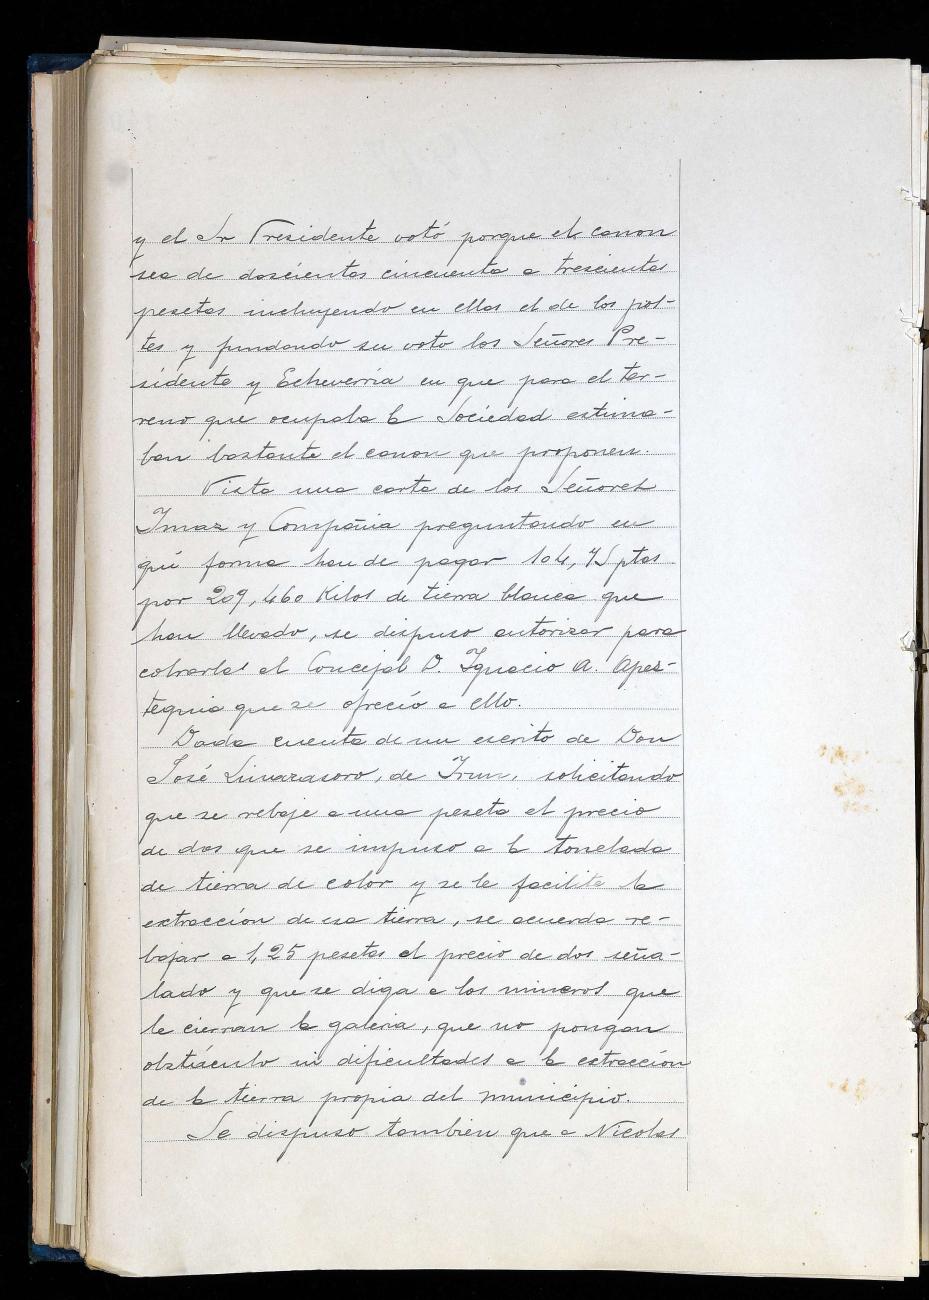 y el Sr Presidente votó porque el canon
sea de doscientas cincuenta a trescientas
pesetas incluyendo en ellas el de los pos-
tes y fundando su voto los Señores Pre-
sidente y Echeverria en que para el ter-
reno que ocupaba la Sociedad estima-
ban bastante el canon que proponen.
Vista una carta de los Señores
Imaz y Compañia preguntando en
qué forma han de pagar 104,75 ptas
por 209,460 Kilos de tierra blanca que
han llevado, se dispuso autorizar para
cobrarlas al Concejal D. Ignacio A. Apes-
teguia que se ofreció a ello.
Dada cuenta de un escrito de Don
José Linazasoro, de Irun, solicitando
que se rebaje a una peseta el precio
de dos que se impuso a la tonelada
de tierra de color y se le facilite la
extracción de esa tierra, se acuerda re-
bajar a 1,25 pesetas el precio de dos seña-
lado y que se diga a los mineros que
le cierran la galeria, que no pongan
obstáculo ni dificultades a la extracción
de la tierra propia del municipio.
Se dispuso tambien que a Nicolas